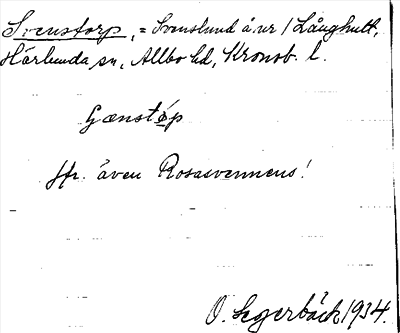 Svenstorp, = Svenslund å nr 1 Långhult,
Härlunda sn, Allbo hd, Kronob. l.
Gænstóp
Jfr. även Rosasvennens!
O. Segerbäck 1934.